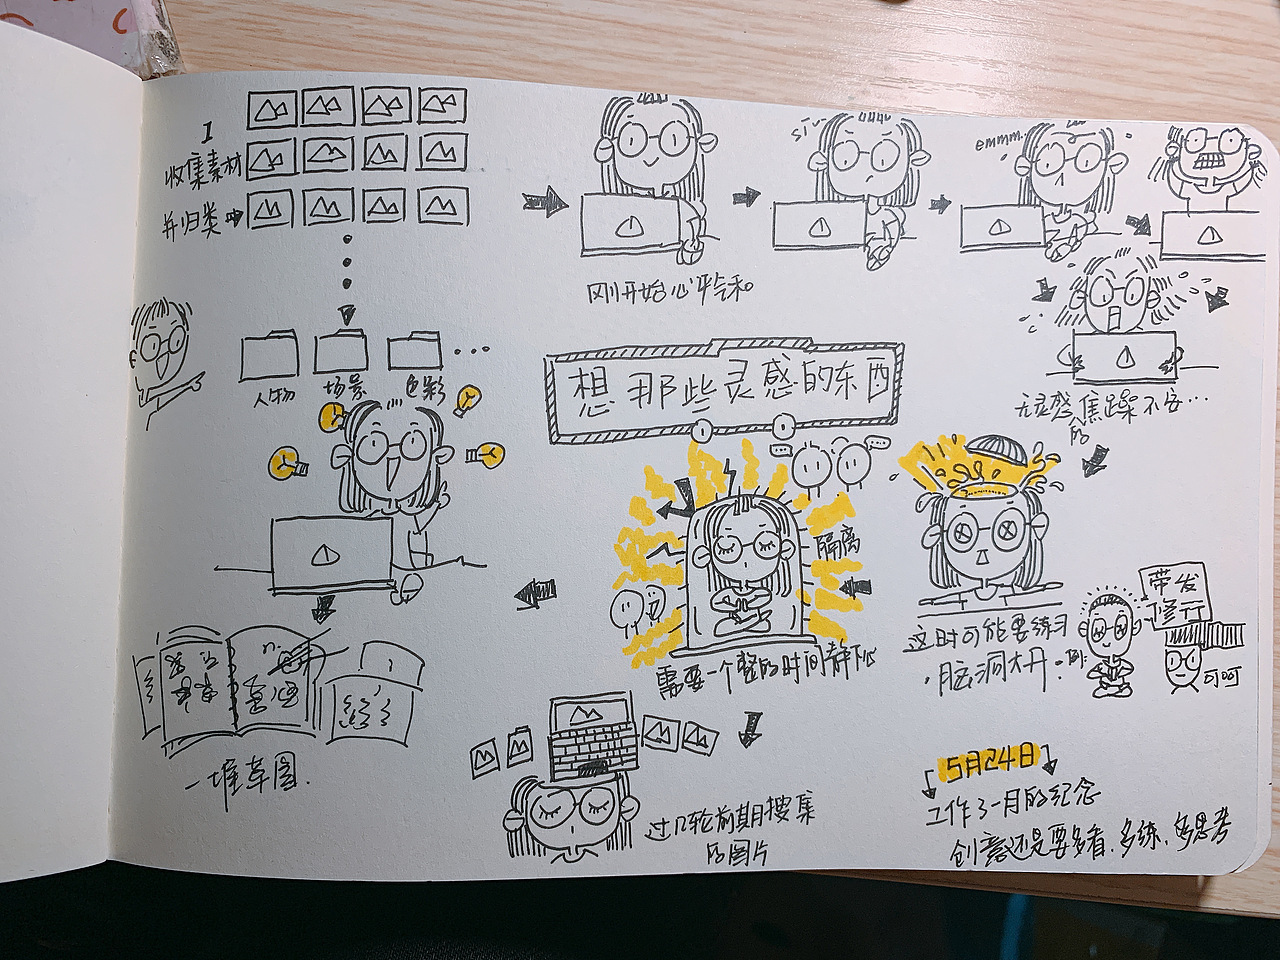 1
收集素材
并归类
人物
场景
色彩
刚开始心平气和
siu~
emmm..
无灵感的焦躁不安…
想那些灵感的东西
隔离
需要一个整的时间静下心
这时可能要练习
脑洞大开。例:
带发
修行
呵呵
过几轮前期搜集
的图片
一堆草图.
5月24日
工作了一月的纪念
创意还是要多看.多练、多思考